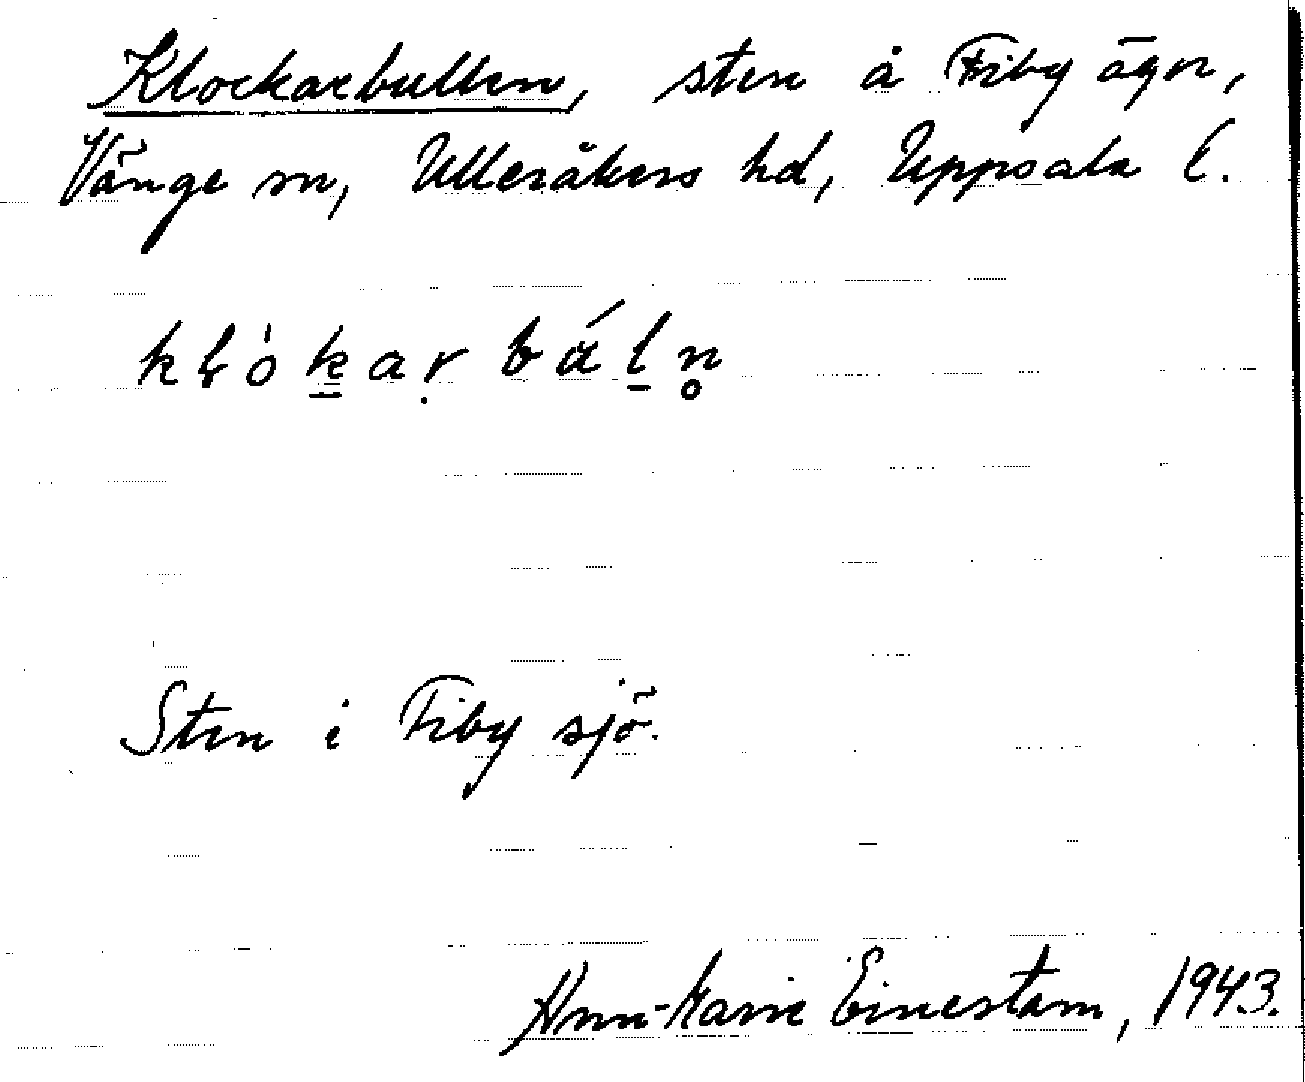 Klockarbullen, sten å Fiby ägor,
Vänge sn, Ulleråkers hd, Uppsala l.
kłòk̲aṛbúl̲n̥
Sten i Fiby sjö.
Ann-Marie Einestam, 1943.